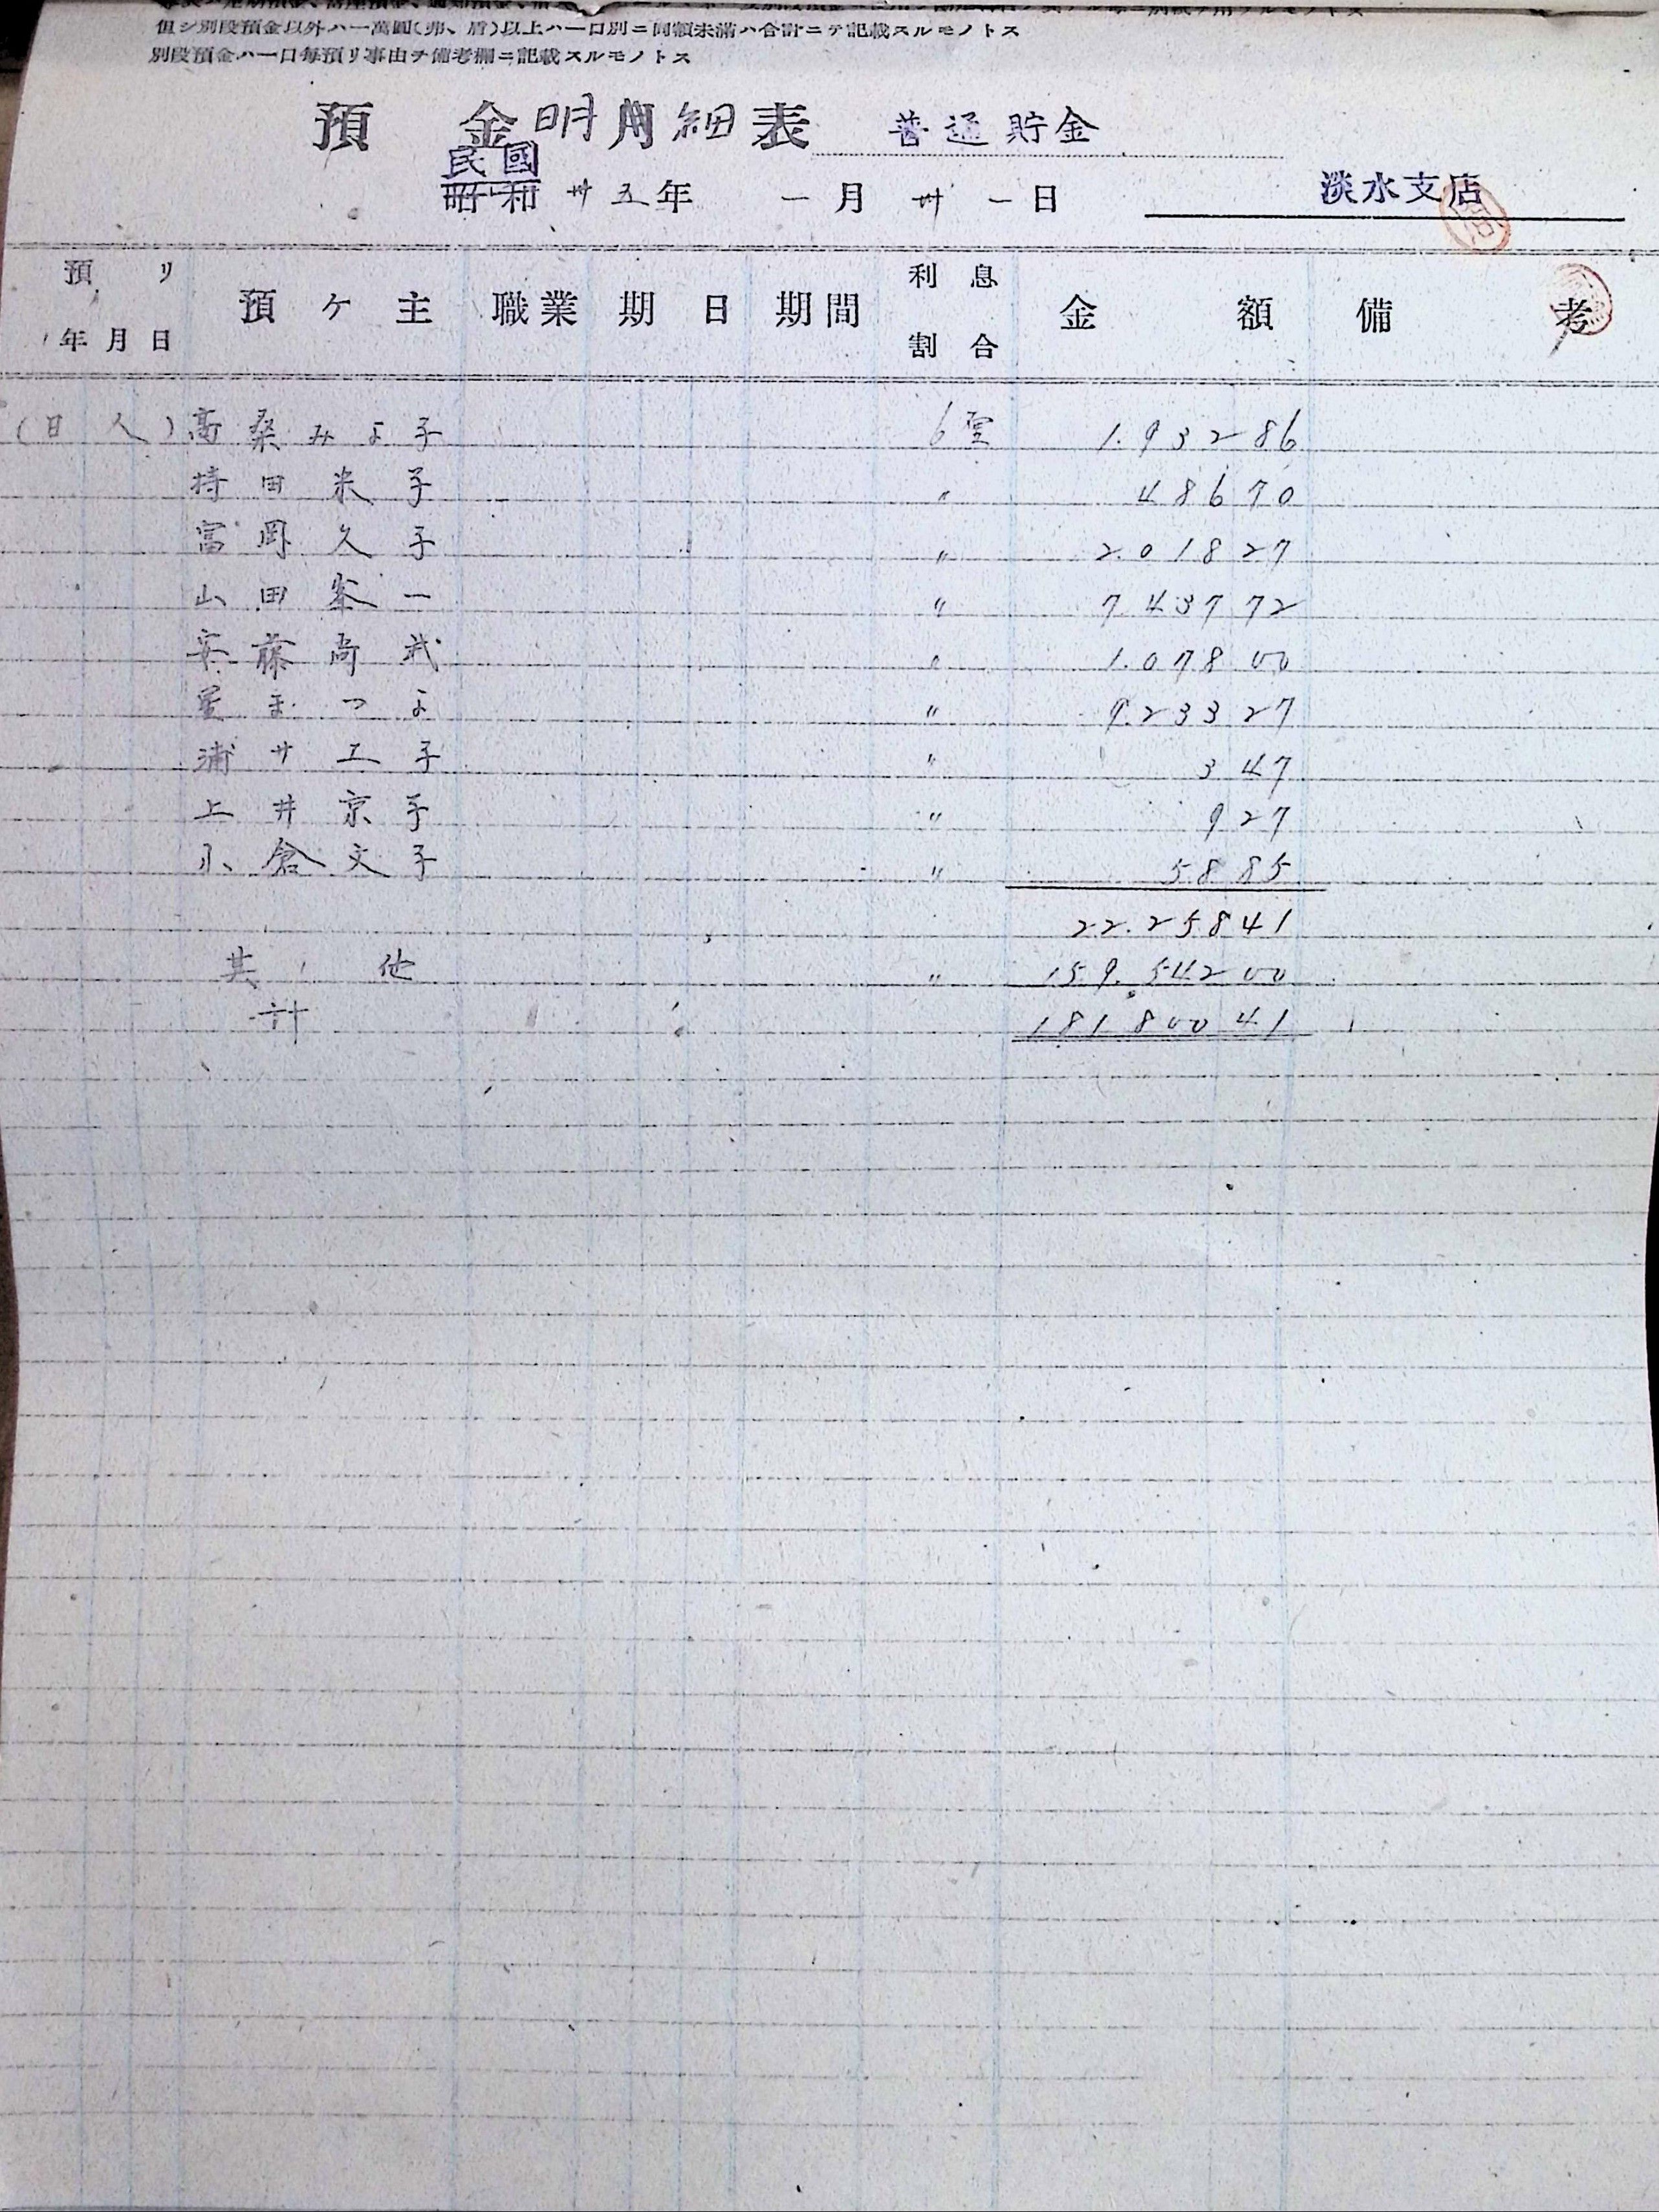 但シ別段預金以外ハ一萬圓(弗、盾)以上ハ一口別ニ同額未滿ハ合計ニテ記載スルモノトス
別段預金ハ一口每預リ事由ヲ備考欄ニ記載スルモノトス
預金明細表 普通貯金
民國
昭和 卅五年 一月卅一日 淡水支店
預リ年月日 預ケ主 職業 期日 期間 利息割合 金額 備考
(日人) 高桑みよ子 6厘 1.932 86
持田米子 〃 486 70
富岡久子 〃 2.018 27
山田峯一 〃 7 437 72
安藤尚武 〃 1.078 00
星まつよ 〃 9.233 27
浦サエ子 〃 3 47
上井京子 〃 9 27
小倉文子 〃 58 85
22.258 41
其他 〃 159.542 00
計 181 800 41